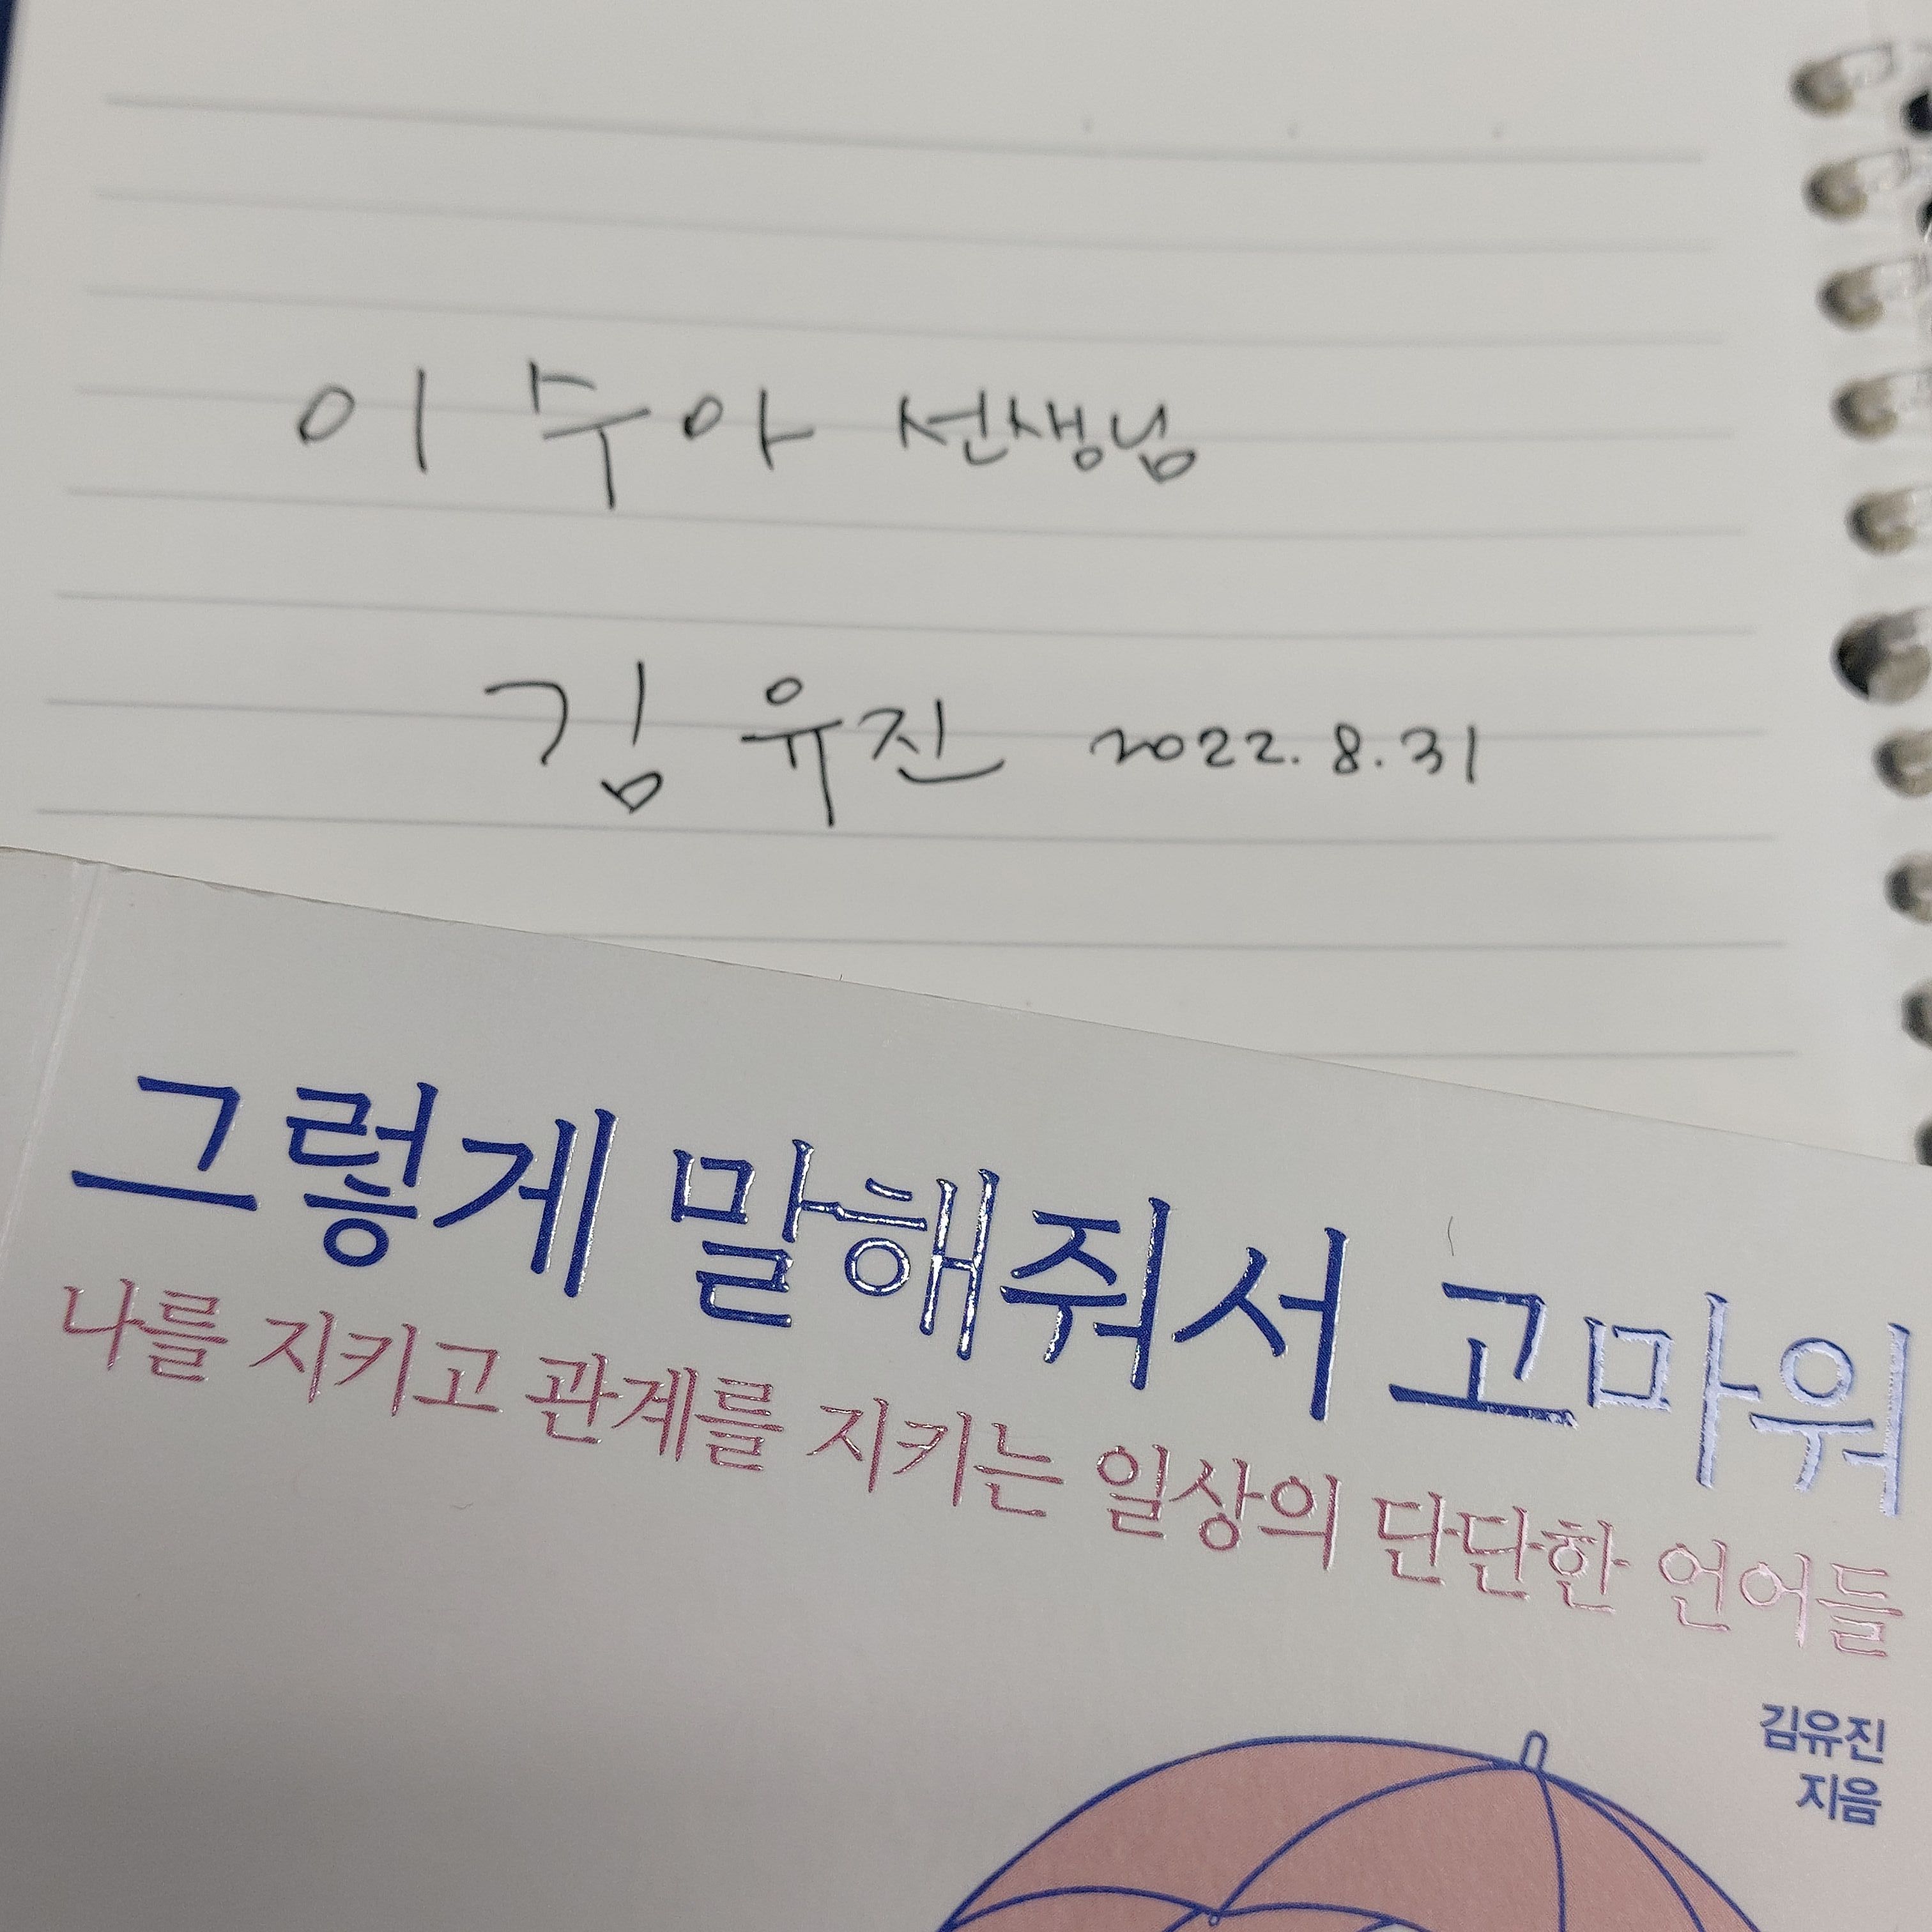 이수아 선생님
김유진 2022.8.31
그렇게 말해줘서 고마워
나를 지키고 관계를 지키는 일상의 단단한 언어들
김유진
지음